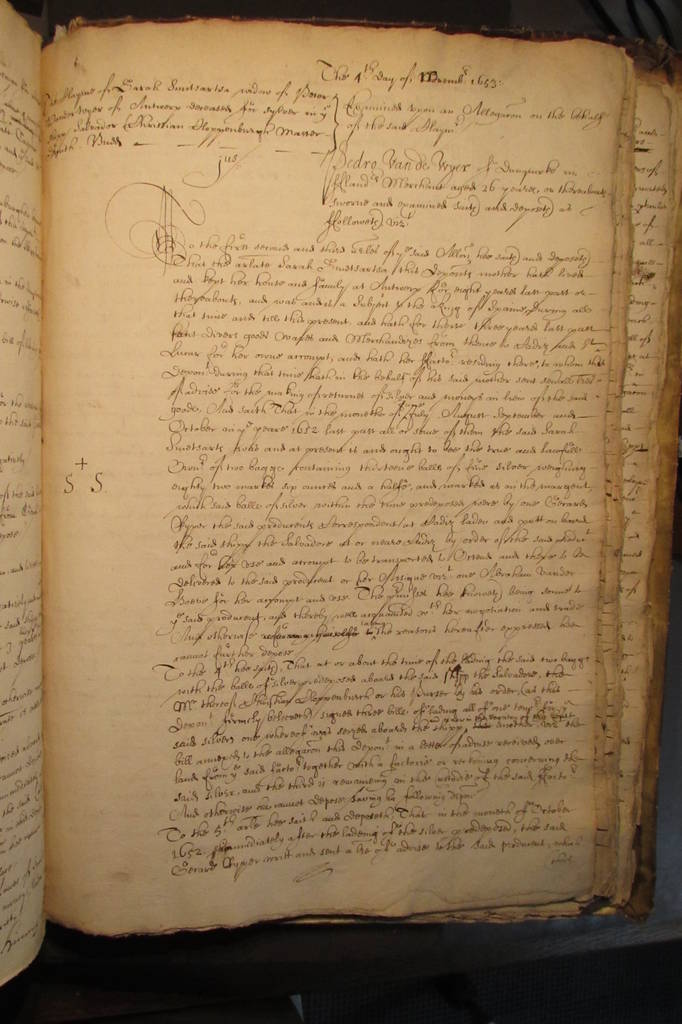 The 4th Day of Decembr. 1653:
The Clayme of Sarah Smitsartsa widow of Peter
Vanderweyer of Antwerp deceased for sylver in ye
shipp Salvador Christian Cloppenburgh Master
jus
Examined upon an Allegaon on the behalfe
of the said Claymr.
Pedro Van de Weyer of Dunquirke in
Flandrs Merchant aged 26 yeares or thereabouts
sworne and examined saith and deposeth as
followeth vizt
To the first second and third arles of ye said Allon hee saith and deposeth
That the arlate Sarah Smitsartsa this deponts mother hath lived
and kept her house and family at Antwerp for eight yeares last past or
thereabouts, and was and is a subject to the King of Spaine during all
that time and till this present, and hath for these three yeares last past
sent divers goods wares and Merchandizes from thence to Cadiz and St
Lucar for her owne accompt, and hath her Factor residing there, to whom this
Deponent during that time hath in the behalfe of his said mother sent severall tres
of advise for the making of returnes of silver and moneys in lieu of the said
goods. And saith That in the moneths of July August September and
October in ye yeare 1652 last past all or some of them the said Sarah
Smitsarts was and at present is and ought to bee the true and lawfull
Ownr of two baggs containing thirteene balls of fine silver weighing
eighty two markes six ounces and a halfe, and marked as in the margent,
S + S
which said balls of silver within the time predeposed were by one Gerard
Cuyper the said producents Correspondent at Cadiz laden and putt on board
the said shipp the Salvadore at or neare Cadiz by order of the said product
and for her use and accompt to be transported to Ostend and there to be
delivered to the said producent or her Assigne vizt one Abraham Vander
for her accompt and use The premisses hee knoweth being sonne to
ye said producent, and thereby well acquainted wth her negotiation and trade
And otherwise the reasons hereafter expressed hee
cannot further depose
To the 4th hee saith That at or about the time of the lading the said two baggs
with the balls of silver predeposed aboard the said shipp the Salvadore, the
Mr thereof Christian Cloppenburch or his Purser by his order (as this
Depont firmely beleeveth) signed three bills of lading all of one tenor for ye
said silver, one whereof was seized aboard the shipp, another vizt the
bill annexed to the allegation this depont in a letter of advise received over
land from ye said factor together with a factorie or reckoning concerning the
said silver, and the third is remaining in the hands of the said Factor
And otherwise hee cannot depose saving his following depon
To the 5th arle hee saith and deposeth That in the moneth of October
1652 immediately after the ladeing of the silver predeposed, the said
Gerard Cuyper writt and sent a tre of advise to the said producent, which